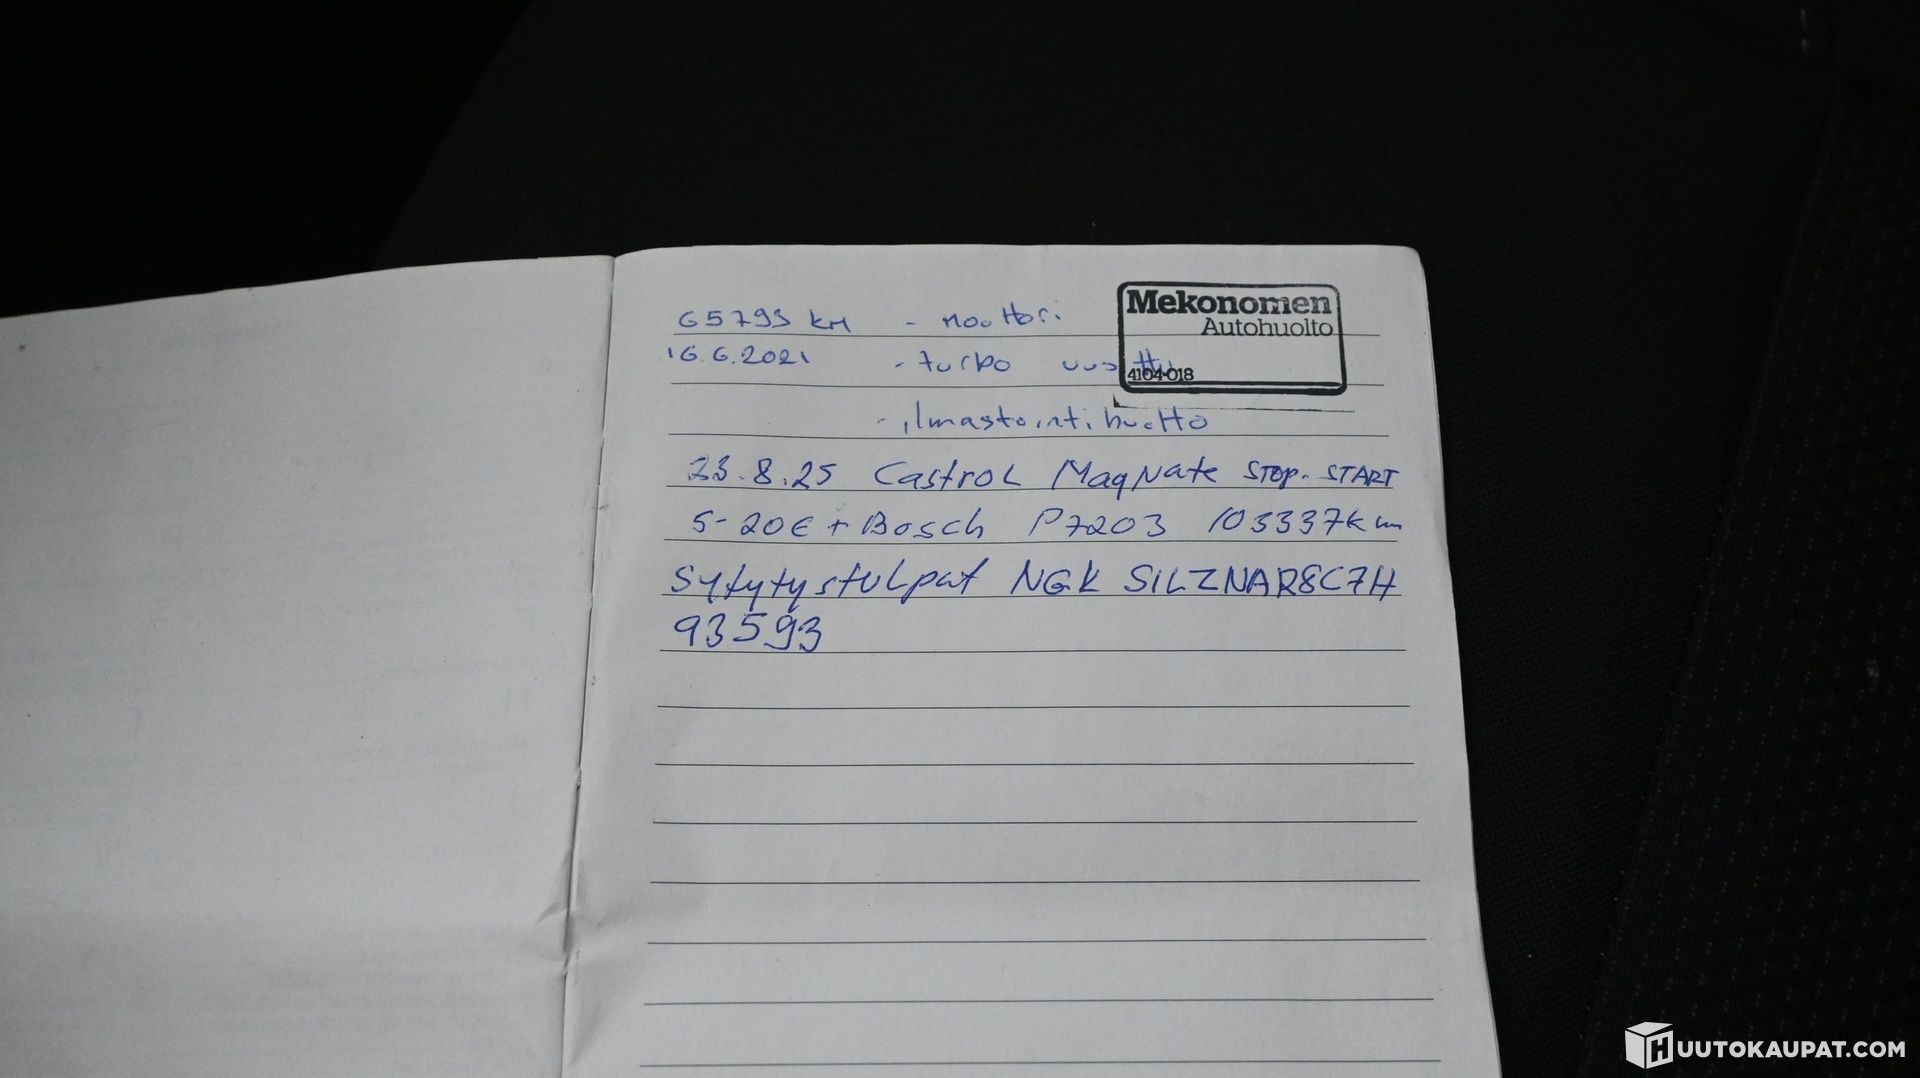 65793 km - moottori
16.6.2021 - turbo uusittu
- ilmastointihuolto
Mekonomen
Autohuolto
4104-018
23.8.25 Castrol MagNate STOP. START
5-20E + Bosch P7203 103337km
Sytytystulpat NGK SILZNAR8C7H
93593
HUUTOKAUPAT.COM